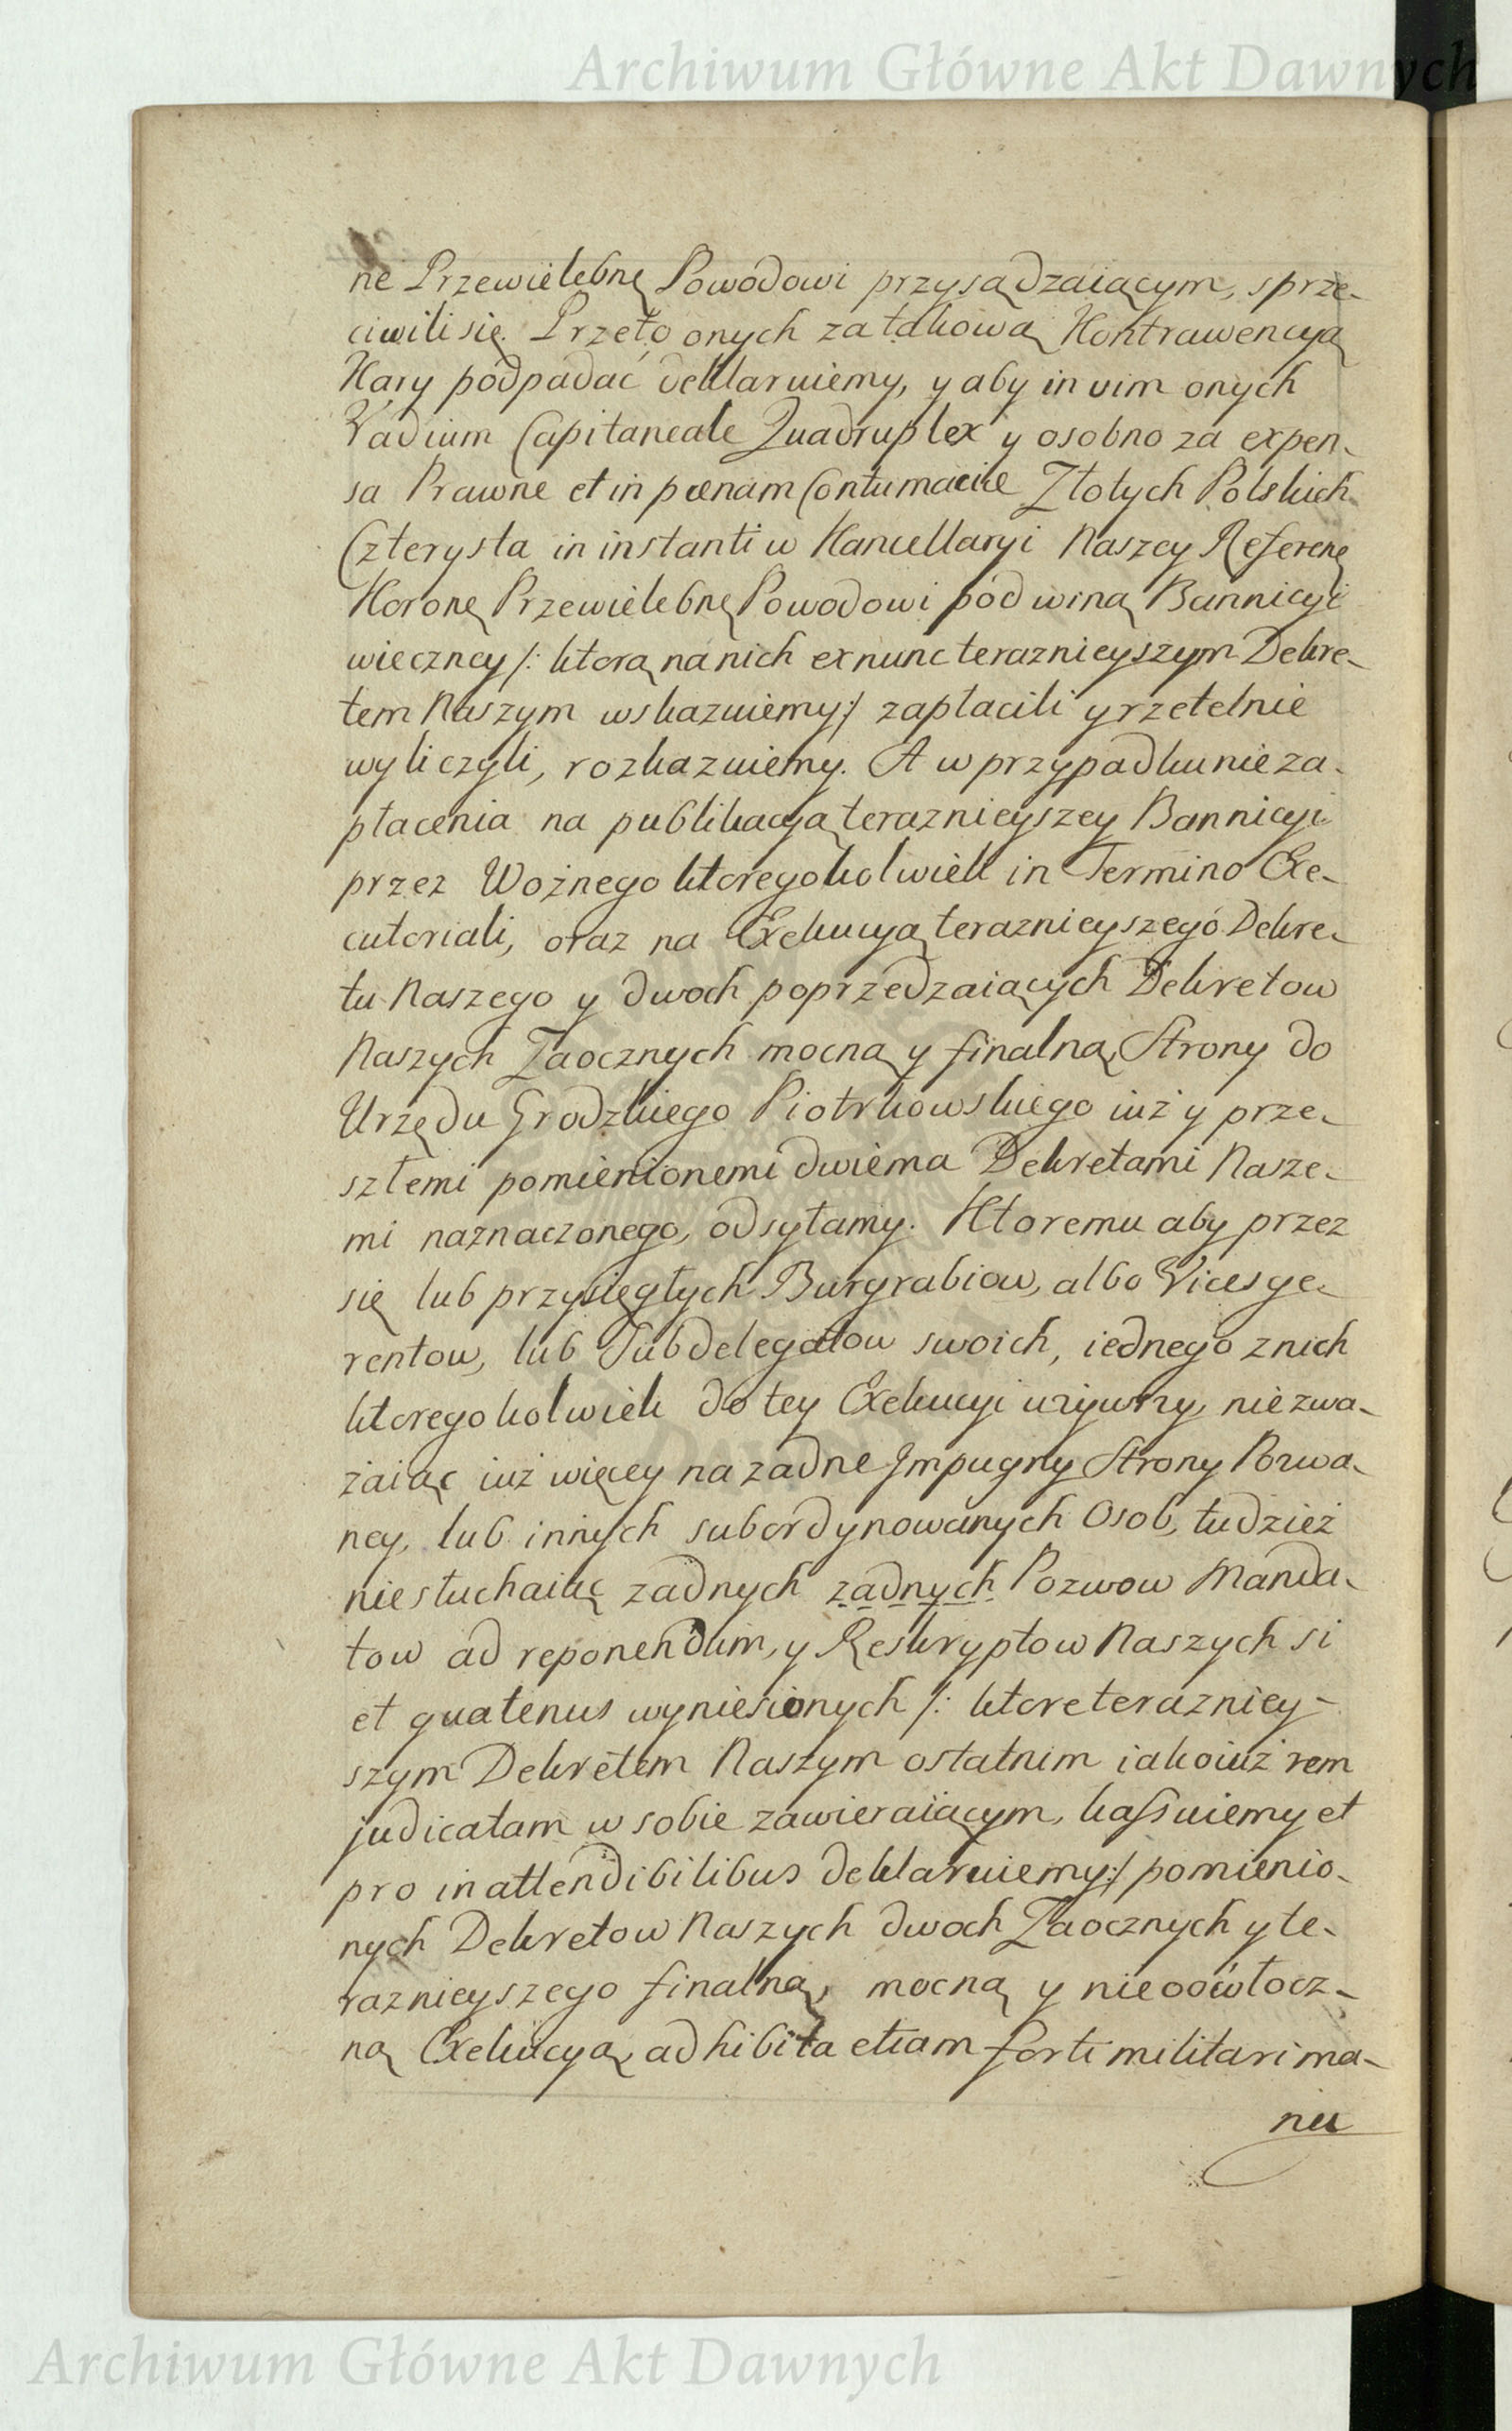 Archiwum Główne Akt Dawnych
ne Przewielebnę Powodowi przysądzaiącym, sprze-
ciwili się. Przeto onych za takową Kontrawencyą
Kary podpadać deklaruiemy, y aby in vim onych
Vadium Capitaneale Quadruplex y osobno za expen-
sa Prawne et in pœnam Contumaciæ Złotych Polskich
Czterysta in instanti w Kancellaryi Naszey Referenę
Koronę Przewielebnę Powodowi pod winą Bannicyi
wieczney /: ktorą na nich ex nunc teraznieyszym Dekre-
tem Naszym wskazuiemy :/ zapłacili y rzetelnie
wyliczyli, rozkazuiemy. A w przypadku nieza-
płacenia na publikacyą teraznieyszey Bannicyi
przez Woźnego ktoregokolwiek in Termino Exe-
cutoriali, oraz na Exekucyą teraznieyszego Dekre-
tu Naszego y dwoch poprzedzaiących Dekretow
Naszych Zaocznych mocną y finalną, Strony do
Urzędu Grodzkiego Piotrkowskiego iuż y prze-
szłemi pomienionemi dwiema Dekretami Nasze-
mi naznaczonego, odsyłamy. Ktoremu aby przez
się lub przysięgłych Burgrabiow, albo Vicesge-
rentow, lub Subdelegatow swoich, iednego z nich
ktoregokolwiek do tey Exekucyi używszy, nie zwa-
żaiąc iuż więcey na żadne Impugny Strony Pozwa-
ney, lub innych subordynowanych Osob, tudzież
niesłuchaiąc żadnych żadnych Pozwow Manda-
tow ad reponendum, y Reskryptow Naszych si
et quatenus wyniesionych /: ktore terazniey-
szym Dekretem Naszym ostatnim iako iuż rem
judicatam w sobie zawieraiącym, kassuiemy et
pro inattendibilibus deklaruiemy :/ pomienio-
nych Dekretow Naszych dwoch Zaocznych y te-
raznieyszego finalną, mocną y nieodwłocz-
ną Exekucyą, adhibita etiam forti militari ma-
nu
Archiwum Główne Akt Dawnych